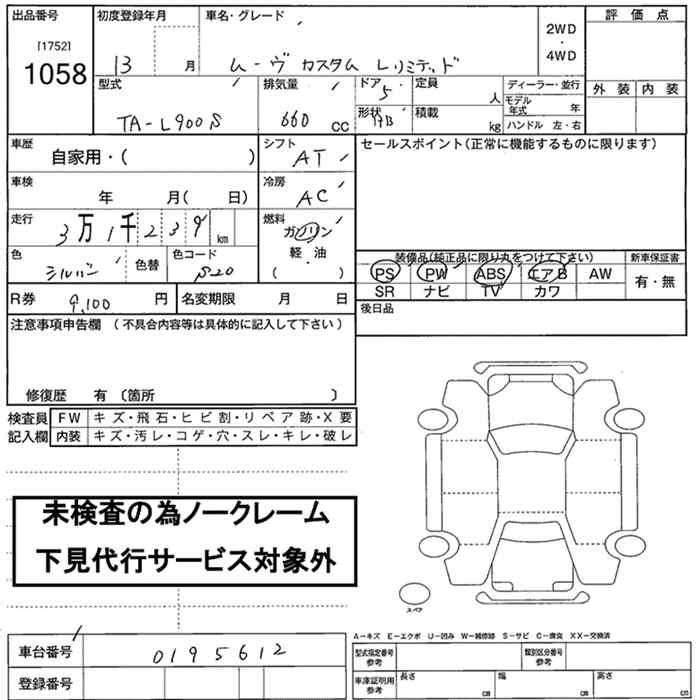 出品番号 初度登録年月 車名・グレード 評価点
[1752] 2WD
1058 ・
13 月 ムーヴ カスタム Lリミテッド 4WD
外装 内装
型式 排気量 ドア 5 定員 人 ディーラー・並行
TA-L900S 660 cc 形状 HB 積載 kg モデル年式 年
ハンドル 左・右
車歴 自家用・( ) シフト AT セールスポイント(正常に機能するものに限ります)
車検 年 月( 日) 冷房 AC
走行 3万1千239 km 燃料 ガソリン
軽・油
( )
色 シルバー 色替 色コード S20
装備品(純正品に限り丸をつけて下さい) 新車保証書
PS PW ABS エアB AW 有・無
SR ナビ TV カワ
R券 9,100 円 名変期限 月 日 後日品
注意事項申告欄 (不具合内容等は具体的に記入して下さい)
修復歴 有 〔箇所 〕
検査員 FW キズ・飛石・ヒビ割・リペア跡・X要
記入欄 内装 キズ・汚レ・コゲ・穴・スレ・キレ・破レ
未検査の為ノークレーム
下見代行サービス対象外
スペア
A-キズ E-エクボ U-凹み W-補修跡 S-サビ C-腐食 XX-交換済
車台番号 0195612 型式指定番号 参考 類別区分番号 参考
登録番号 車庫証明用 参考 長さ cm 幅 cm 高さ cm